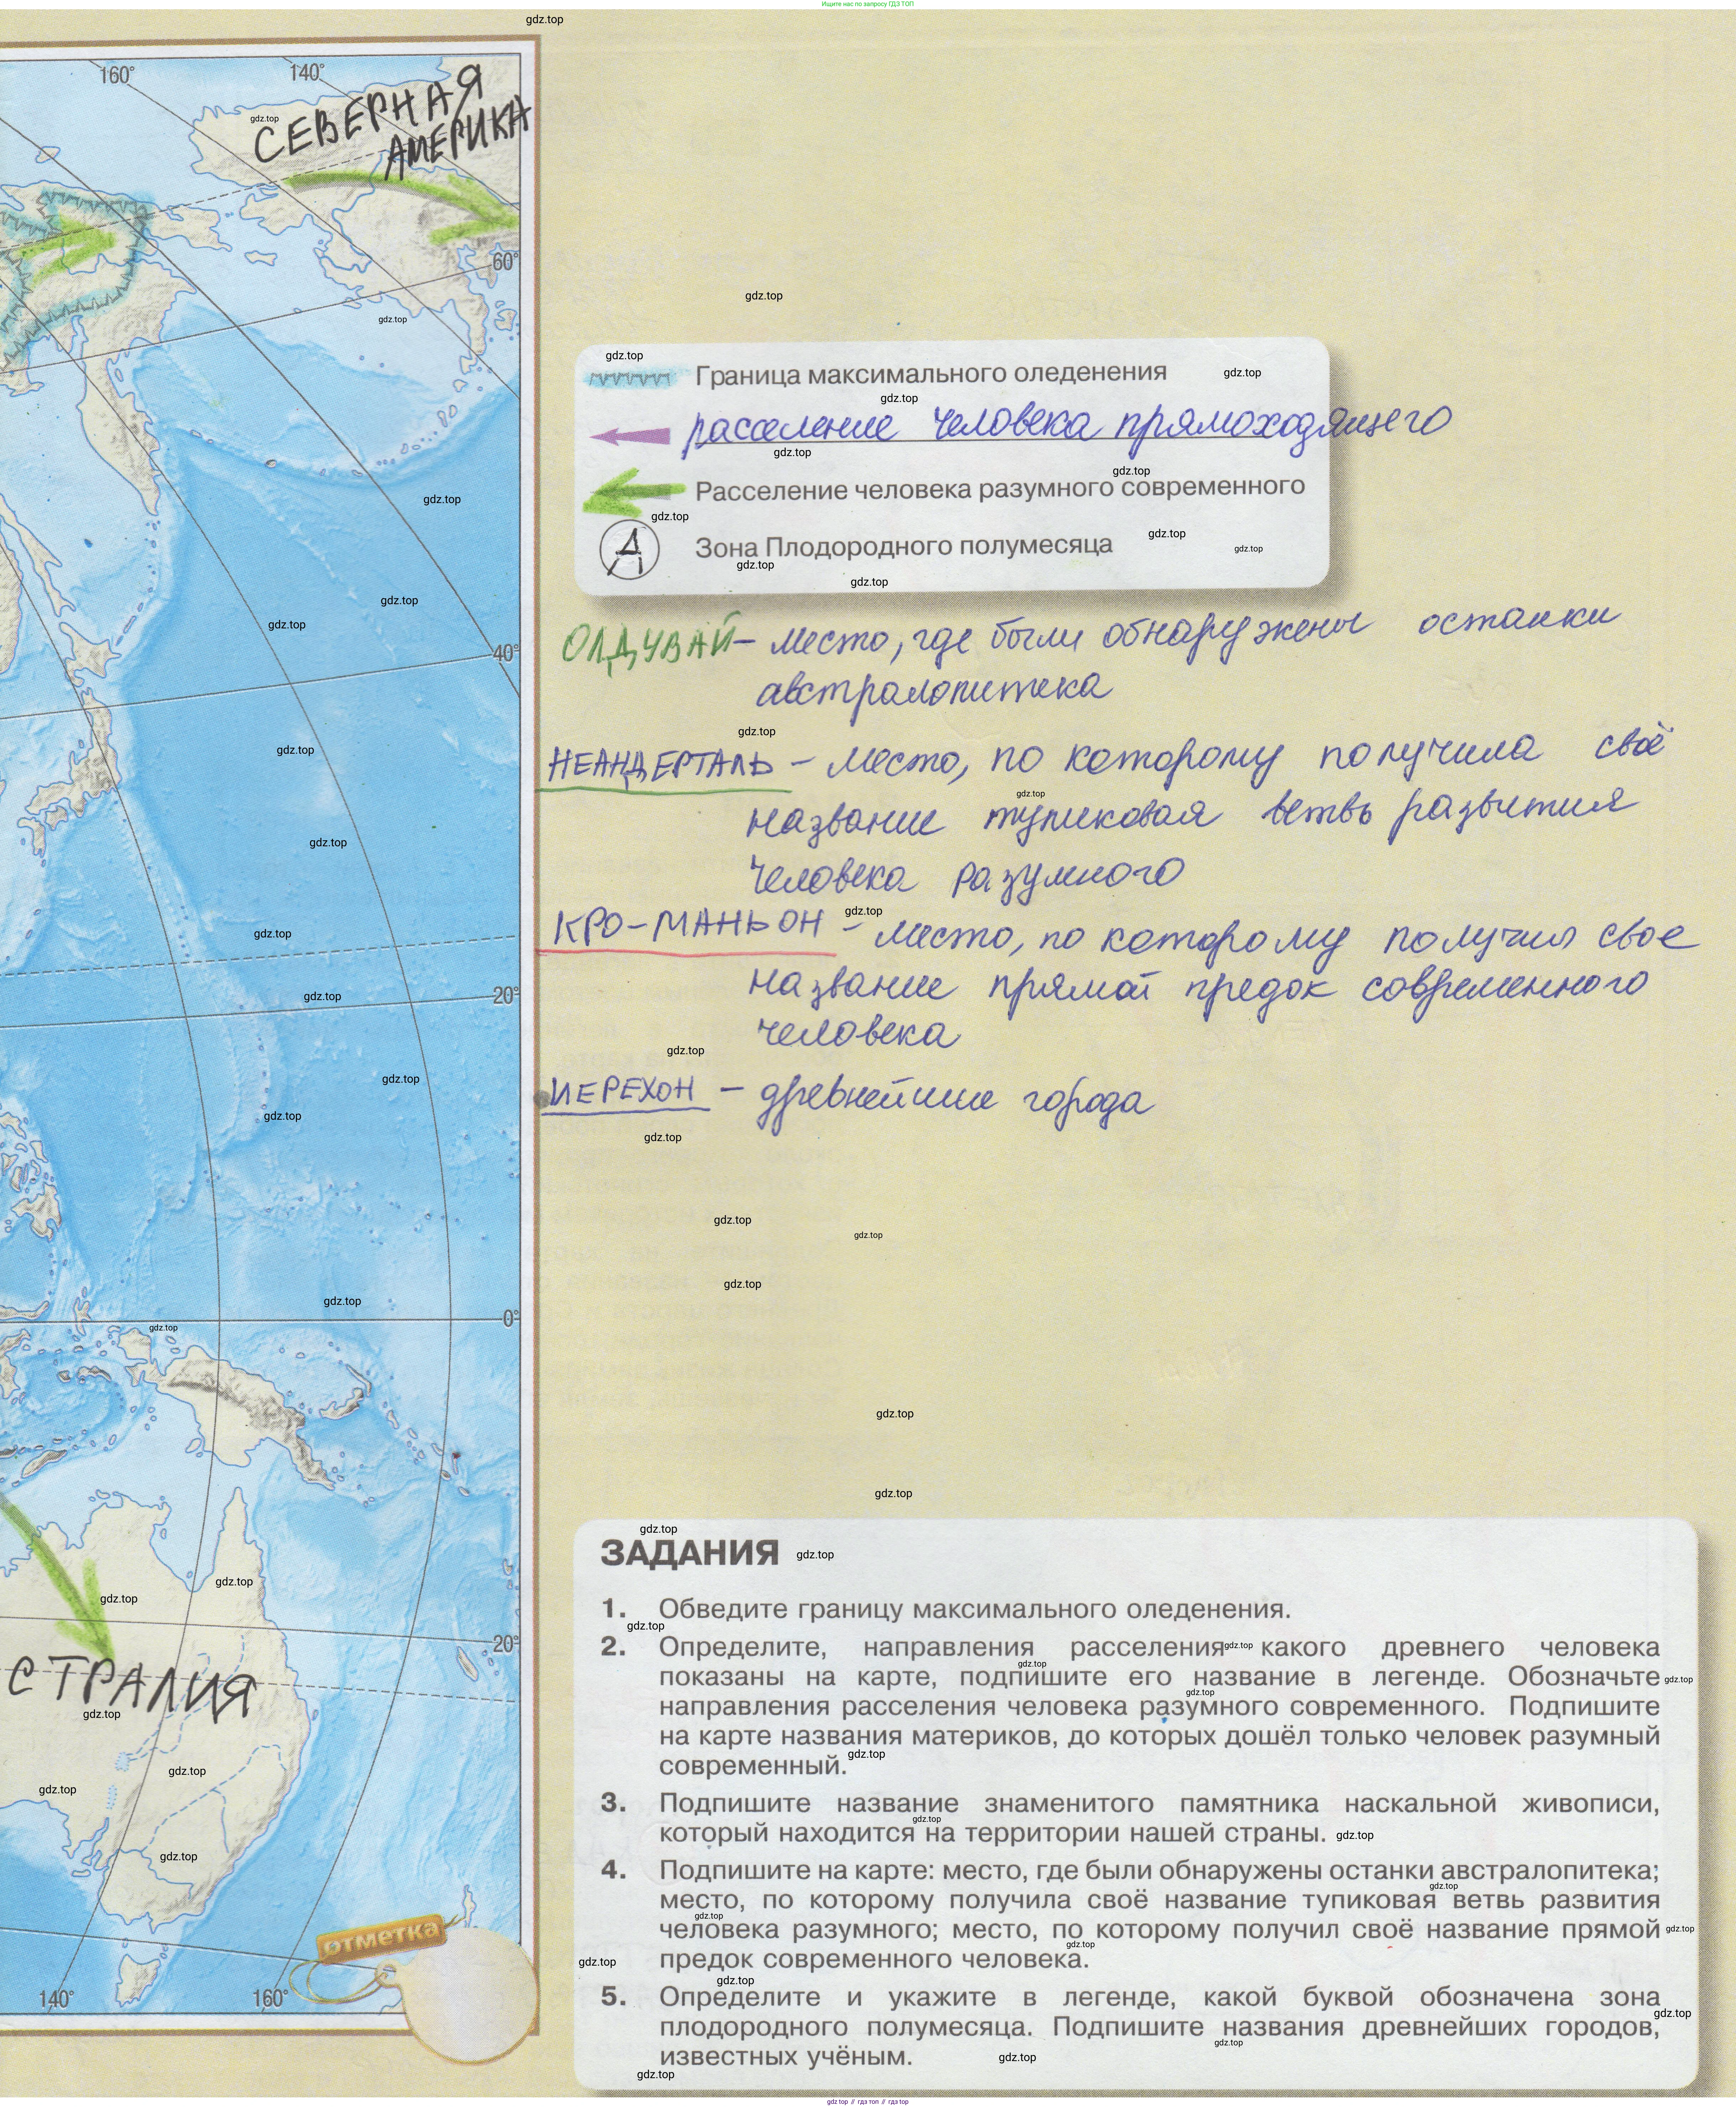 Ищите нас по запросу ГДЗ ТОП
gdz.top
160°
140°
СЕВЕРНАЯ
АМЕРИКА
60°
40°
20°
0°
20°
СТРАЛИЯ
140°
160°
отметка
Граница максимального оледенения
расселение человека прямоходящего
Расселение человека разумного современного
А Зона Плодородного полумесяца
ОЛДУВАЙ – место, где были обнаружены останки
австралопитека
НЕАНДЕРТАЛЬ – место, по которому получила своё
название тупиковая ветвь развития
человека разумного
КРО-МАНЬОН – место, по которому получил свое
название прямой предок современного
человека
ИЕРЕХОН – древнейшие города
ЗАДАНИЯ
1. Обведите границу максимального оледенения.
2. Определите, направления расселения какого древнего человека
показаны на карте, подпишите его название в легенде. Обозначьте
направления расселения человека разумного современного. Подпишите
на карте названия материков, до которых дошёл только человек разумный
современный.
3. Подпишите название знаменитого памятника наскальной живописи,
который находится на территории нашей страны.
4. Подпишите на карте: место, где были обнаружены останки австралопитека;
место, по которому получила своё название тупиковая ветвь развития
человека разумного; место, по которому получил своё название прямой
предок современного человека.
5. Определите и укажите в легенде, какой буквой обозначена зона
плодородного полумесяца. Подпишите названия древнейших городов,
известных учёным.
gdz top // гдз топ // гдз top